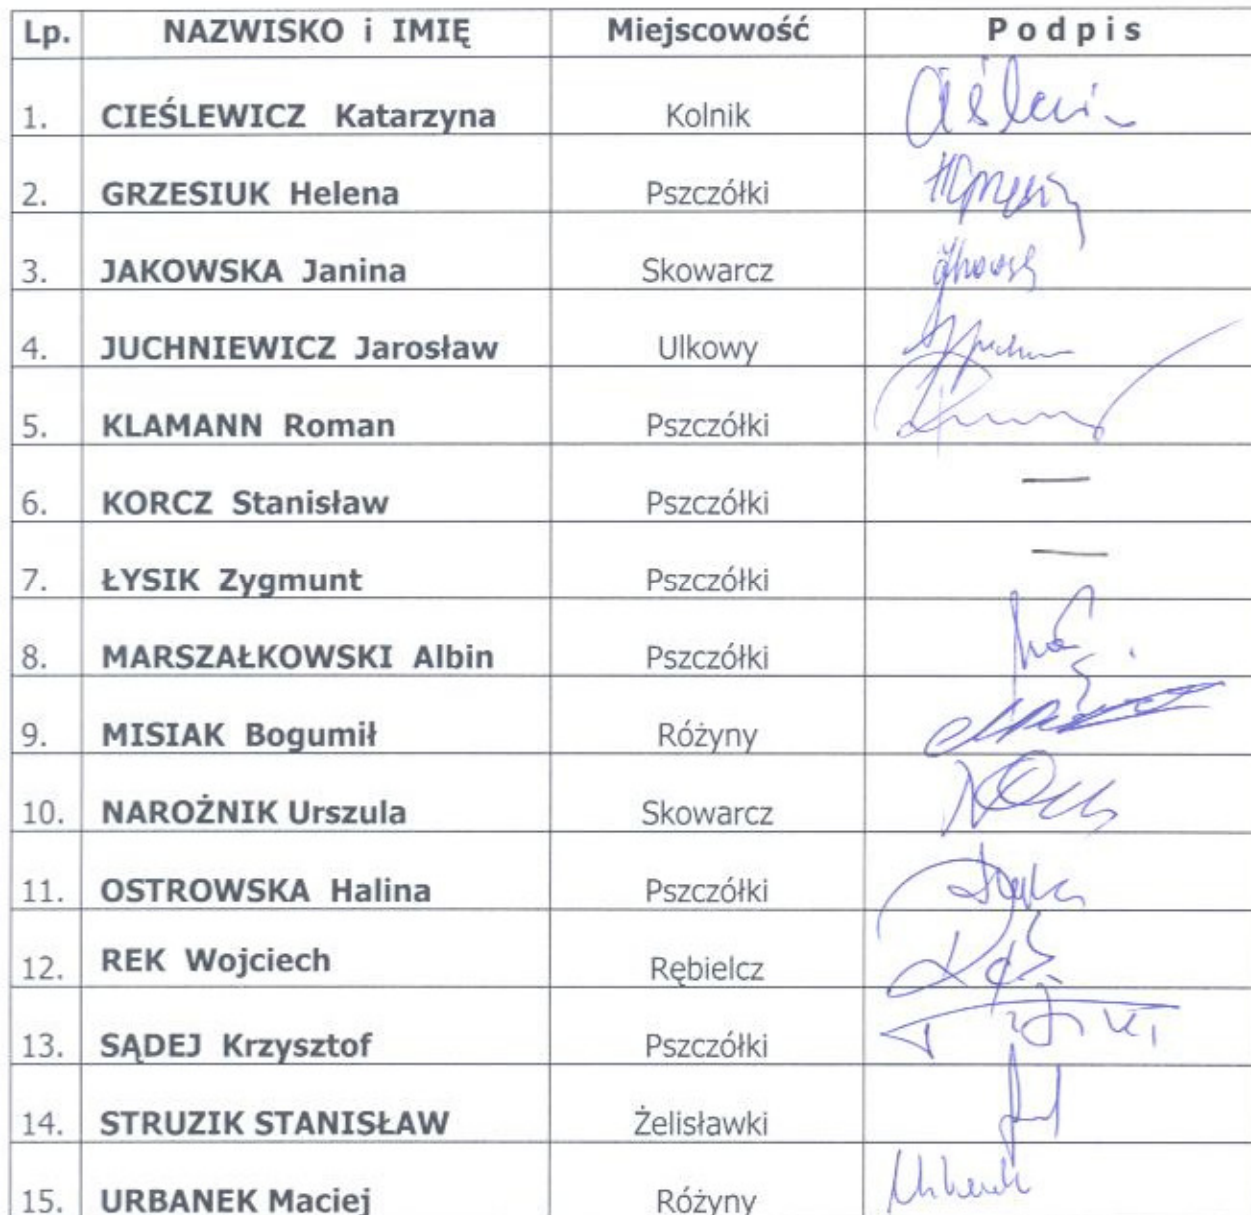 Lp. NAZWISKO i IMIĘ Miejscowość Podpis
1. CIEŚLEWICZ Katarzyna Kolnik
2. GRZESIUK Helena Pszczółki
3. JAKOWSKA Janina Skowarcz
4. JUCHNIEWICZ Jarosław Ulkowy
5. KLAMANN Roman Pszczółki
6. KORCZ Stanisław Pszczółki —
7. ŁYSIK Zygmunt Pszczółki —
8. MARSZAŁKOWSKI Albin Pszczółki
9. MISIAK Bogumił Różyny
10. NAROŻNIK Urszula Skowarcz
11. OSTROWSKA Halina Pszczółki
12. REK Wojciech Rębielcz
13. SĄDEJ Krzysztof Pszczółki
14. STRUZIK STANISŁAW Żelisławki
15. URBANEK Maciej Różyny